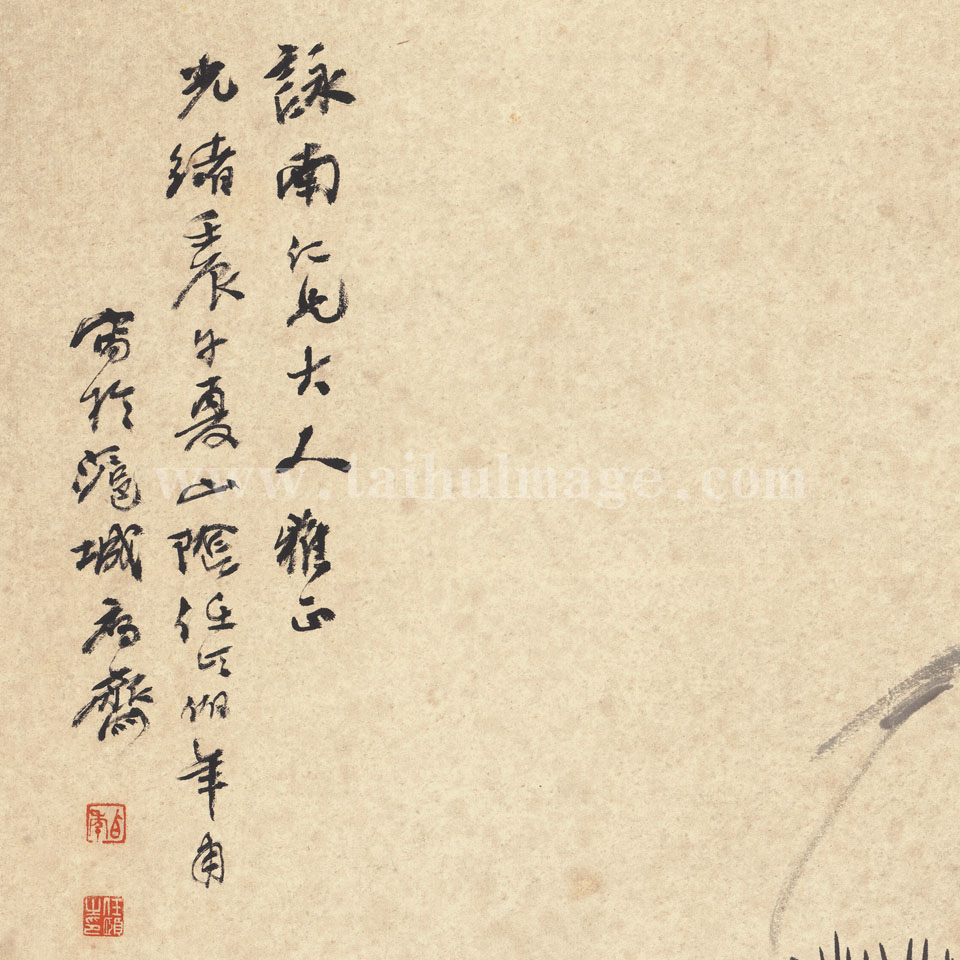 詠南仁兄大人雅正
光緒壬辰午夏山陰任頤伯年甫
寫於滬城寓齋
伯年
任頤之印
www.taihuImage.com